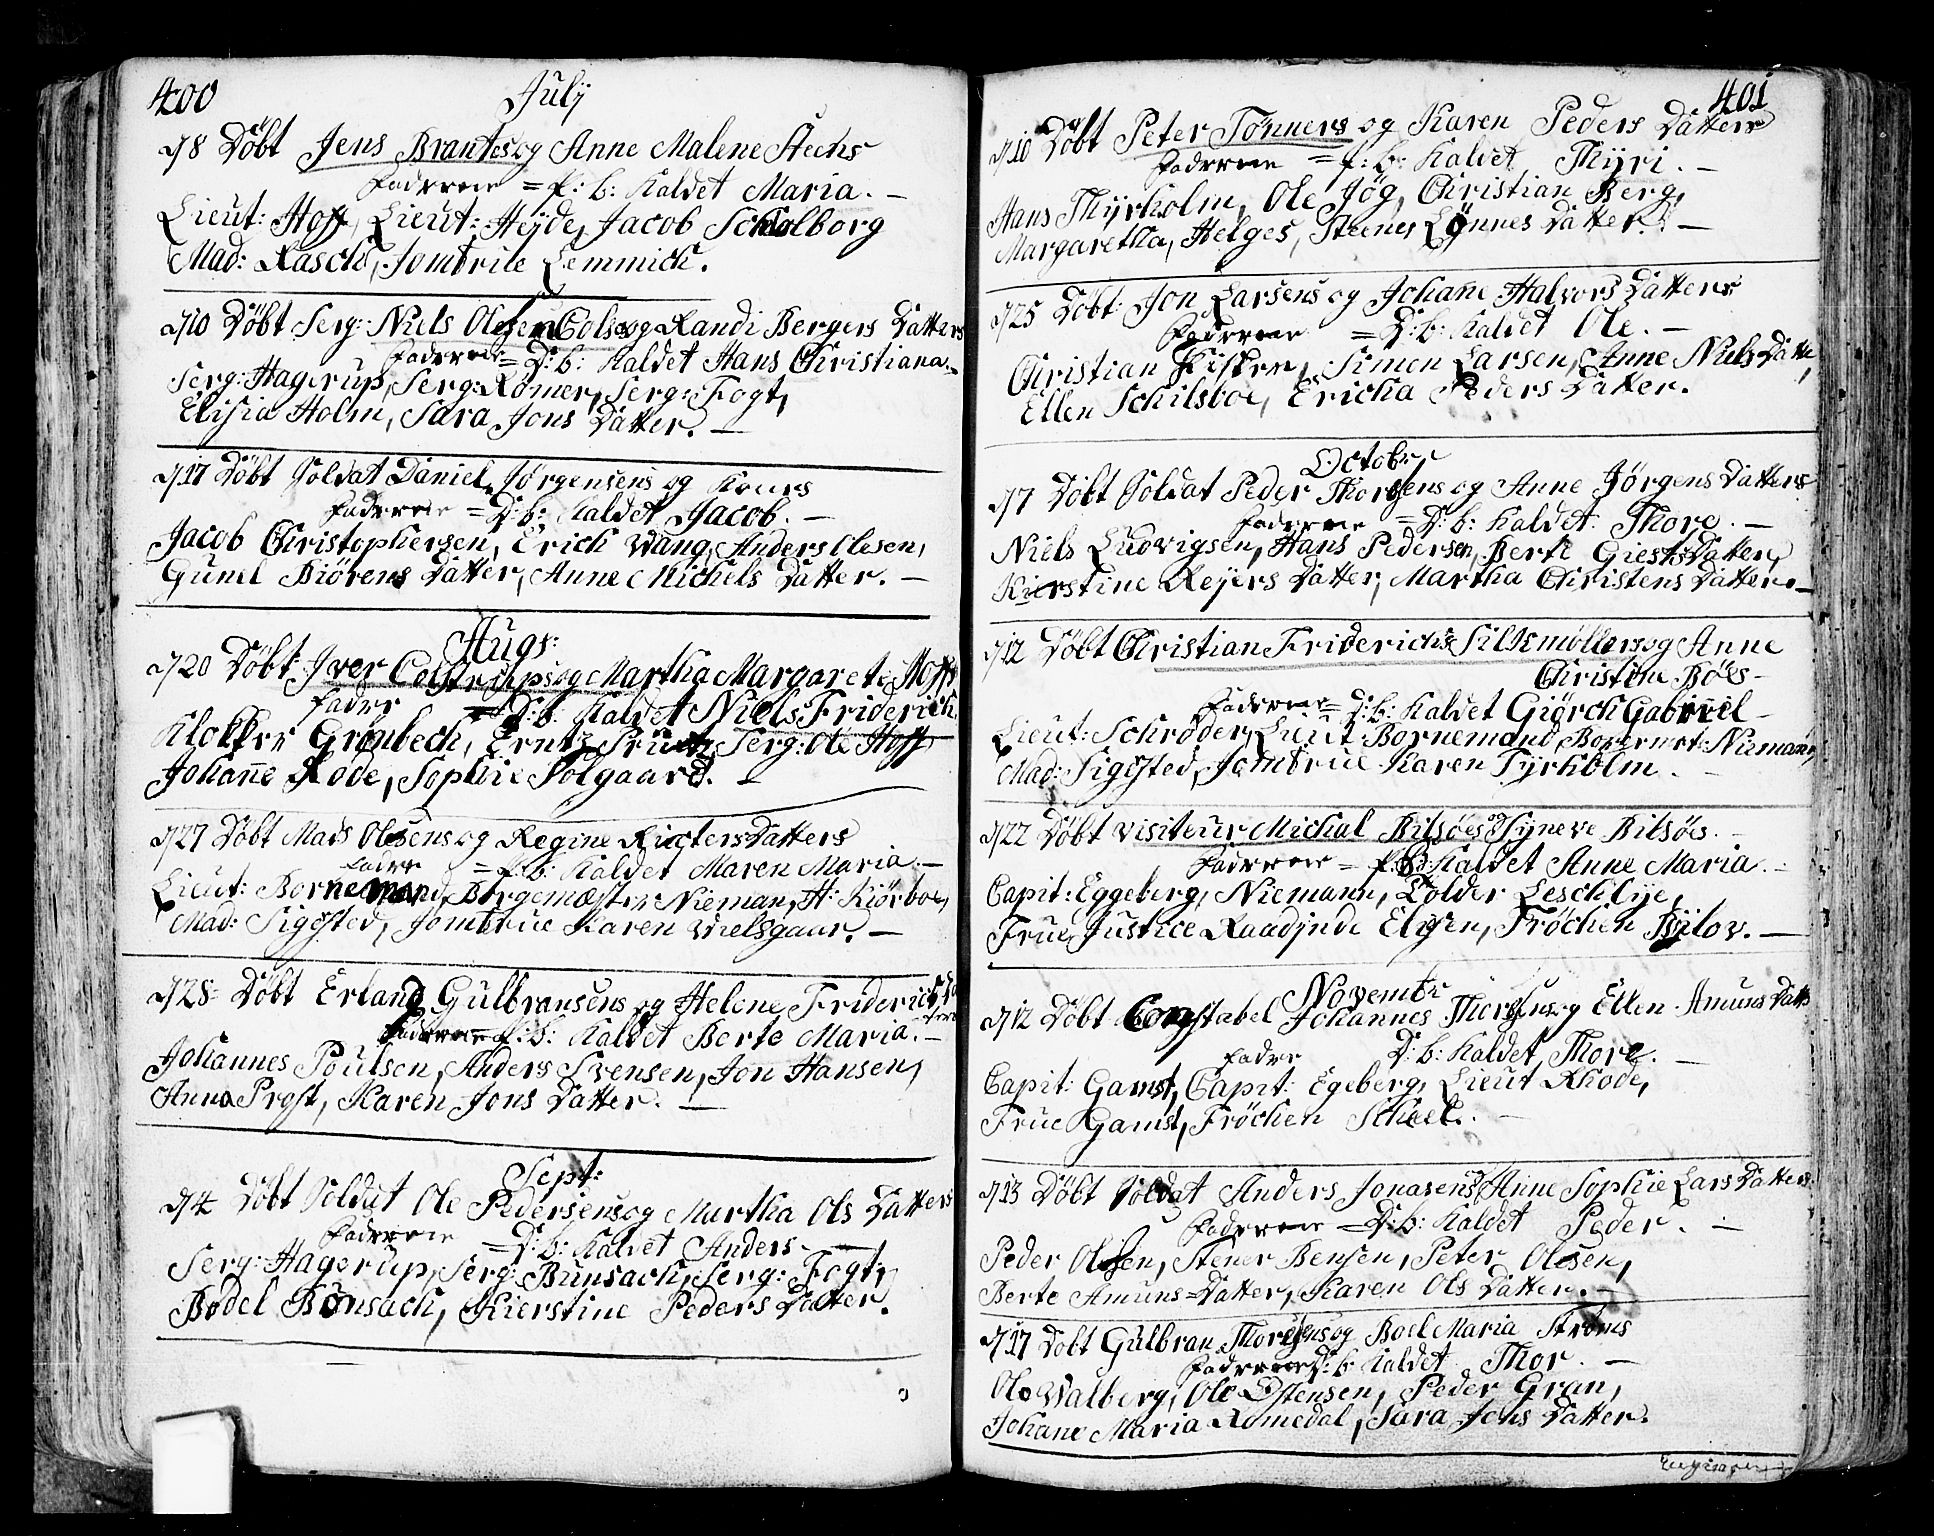 400
July
d/8 Döbt Jens Brantes og Anne Malene Stechs
Fadderne = P: b: Kaldet Maria. —
Lieut: Hoff, Lieut: Heyde, Jacob Scholborg
Mad: Rasch, Jomfrue Lemmich.
d/10 Döbt Serg: Niels Olesen og Randi Bergers Datters
Fadderne = D: b: Kaldet Hans Christian
Serg: Hagerup, Serg: Romer, Serg: Fogt,
Elisia Holm, Sara Jons Datter. —
d/17 Döbt Soldat Daniel Jörgensens og
Fadderne = D: b: Kaldet Jacob. —
Jacob Christophersen, Erich Wang, Anders Olesen,
Gunel Biörens Datter, Anne Michels Datter. —
Augs:
d/20 Döbt Iver Colstrups og Martha Margarete Hoffs
Fadder = D: b: Kaldet Niels Friderich
Klokker Grönbech, Serg: Ole Hoff
Johanne Rode, Sophie Solgaard. —
d/27 Döbt Mads Olesens og Regine Ricters Datters
Fadder = P: b: Kaldet Maren Maria. —
Lieut: Bornemand, Borgemæster Nieman, H: Kiörboe,
Mad: Sigosted, Jomfrue Karen Wielsgaar. —
d/28 Döbt Erland Gulbransens og Helene Friderichs
Fadderne P: b: Kaldet Berte Maria. —
Johannes Poulsen, Anders Svensen, Jon Hansen,
Anna Prost, Karen Jons Datter. —
Sept:
d/4 Döbt Soldat Ole Pedersens og Martha Ols Datters
Fadderne = D: b: Kaldet Anders —
Serg: Hagerup, Serg: Bunsach, Serg: Fogt,
Bodel Bönsach, Kierstine Peders Datter.
401
d/10 Döbt Peter Tönners og Karen Peders Datters
Fadderne = P: b: Kaldet Thyri. —
Hans Thyrholm, Ole Jög, Christian Berg,
Margaretha, Helges, Steenes Lönnes Datter. —
d/25 Döbt Jon Larsens og Johane Halvors Datters
Fadderne = D: b: Kaldet Ole. —
Christian Simen Larsen, Anne Niels Datter,
Ellen Schilsboe, Ericha Peders Datter.
Octobr
d/7 Döbt Soldat Peder Thorsens og Anne Jörgens Datters
Fadderne = D: b: Kaldet Thore. —
Niels Ludvigsen, Hans Pedersen, Berte Giests Datter,
Kierstine Reyers Datter, Martha Christens Datter. —
d/12 Döbt Christian Friderichs Siltsmöllers og Anne
Christine Böes —
Fadderne = D: b: Kaldet Giörch Gabriel —
Lieut: Schröder, Lieut: Bornemand, Borgermst: Niemann,
Mad: Sigosted, Jomfrue Karen Tyrholm. —
d/22 Döbt Visiteur Michal Bilsöes og Syneve Bilsöes. —
Fadderne = P: b: Kaldet Anne Maria. —
Capit: Eggeberg, Niemann, Tolder Leschlye,
Frue Justice Raadinde Elvsen, Fröchen Bylov. —
Novembr
d/12 Döbt Constabel Johannes Thorsens og Ellen Amuns Datt
Fadder D: b: Kaldet Thore. —
Capit: Gamst, Capit: Egeberg, Lieut Rhode,
Frue Gamst, Fröchen Scheel. —
d/13 Döbt Soldat Anders Jonasens Anne Sophie Lars Datters
Fadderne = D: b: Kaldet Peder. —
Peder Olesen, Stener Bensen, Peter Olesen,
Berte Amuns=Datter, Karen Ols Datter.
d/17 Döbt Gulbran Thoresens og Boel Maria Ströms
Fadderne D: b: Kaldet Thor. —
Ole Walberg, Ole Ostensen, Peder Gran,
Johane Maria Romedal, Sara Jens Datter.